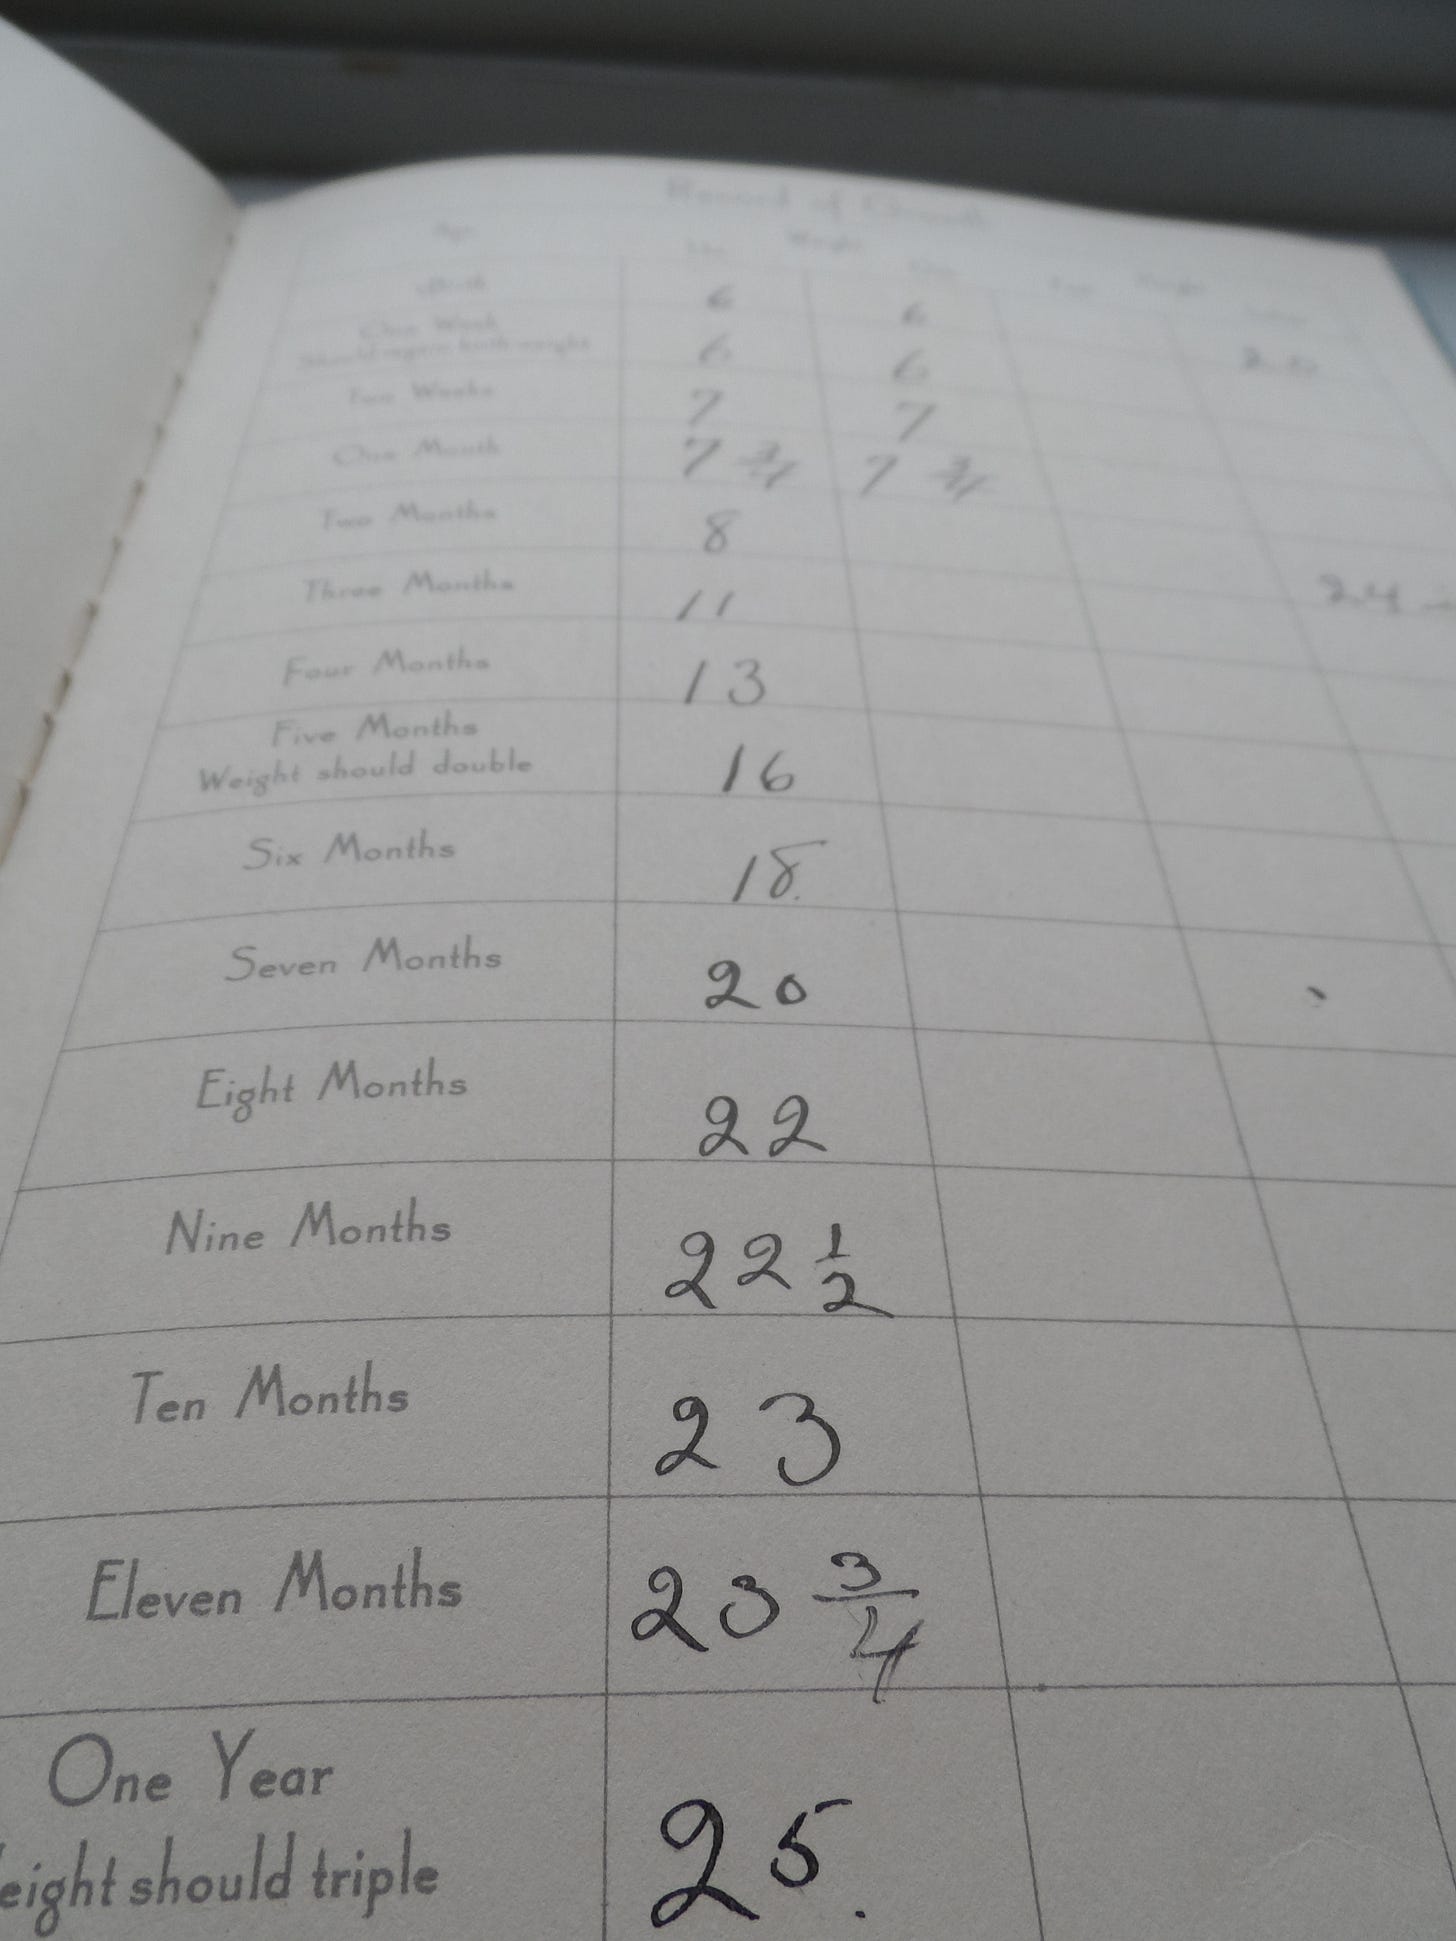 Record of Growth
Age Weight
Birth 6 6
One Week
Should regain birth weight 6 6 20
Two Weeks 7 7
One Month 7 3/4 7 3/4
Two Months 8
Three Months 11 24
Four Months 13
Five Months
Weight should double 16
Six Months 18.
Seven Months 20
Eight Months 22
Nine Months 22 1/2
Ten Months 23
Eleven Months 23 3/4
One Year
eight should triple 25.